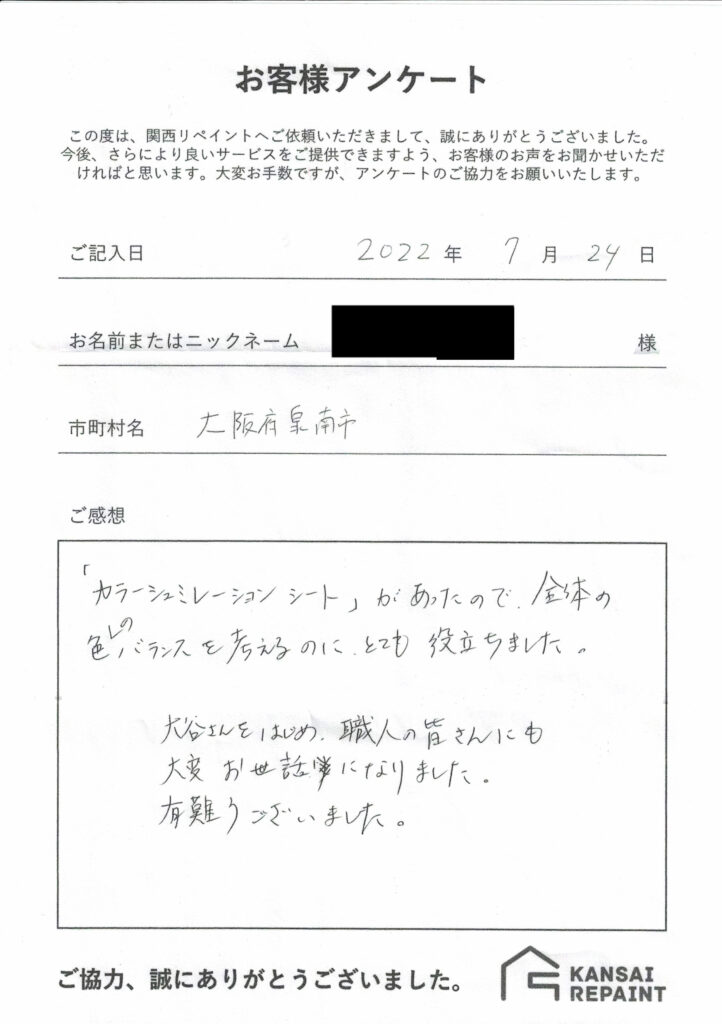 お客様アンケート
この度は、関西リペイントへご依頼いただきまして、誠にありがとうございました。
今後、さらにより良いサービスをご提供できますよう、お客様のお声をお聞かせいただ
ければと思います。大変お手数ですが、アンケートのご協力をお願いいたします。
ご記入日 2022 年 7 月 24 日
お名前またはニックネーム 様
市町村名 大阪府泉南市
ご感想
「カラーシュミレーションシート」があったので、全体の
色のバランスを考えるのに、とても役立ちました。
大谷さんをはじめ、職人の皆さんにも
大変お世話になりました。
有難うございました。
ご協力、誠にありがとうございました。
KANSAI
REPAINT